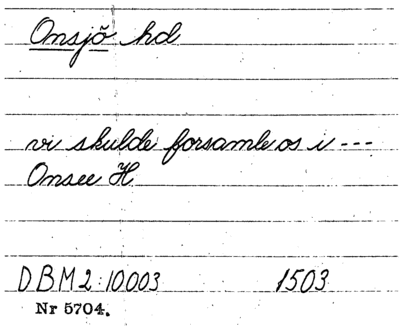 Onsjö hd
vi skulde forsamle os i ---
Onsee H
DBM2:10003 1503
Nr 5704.